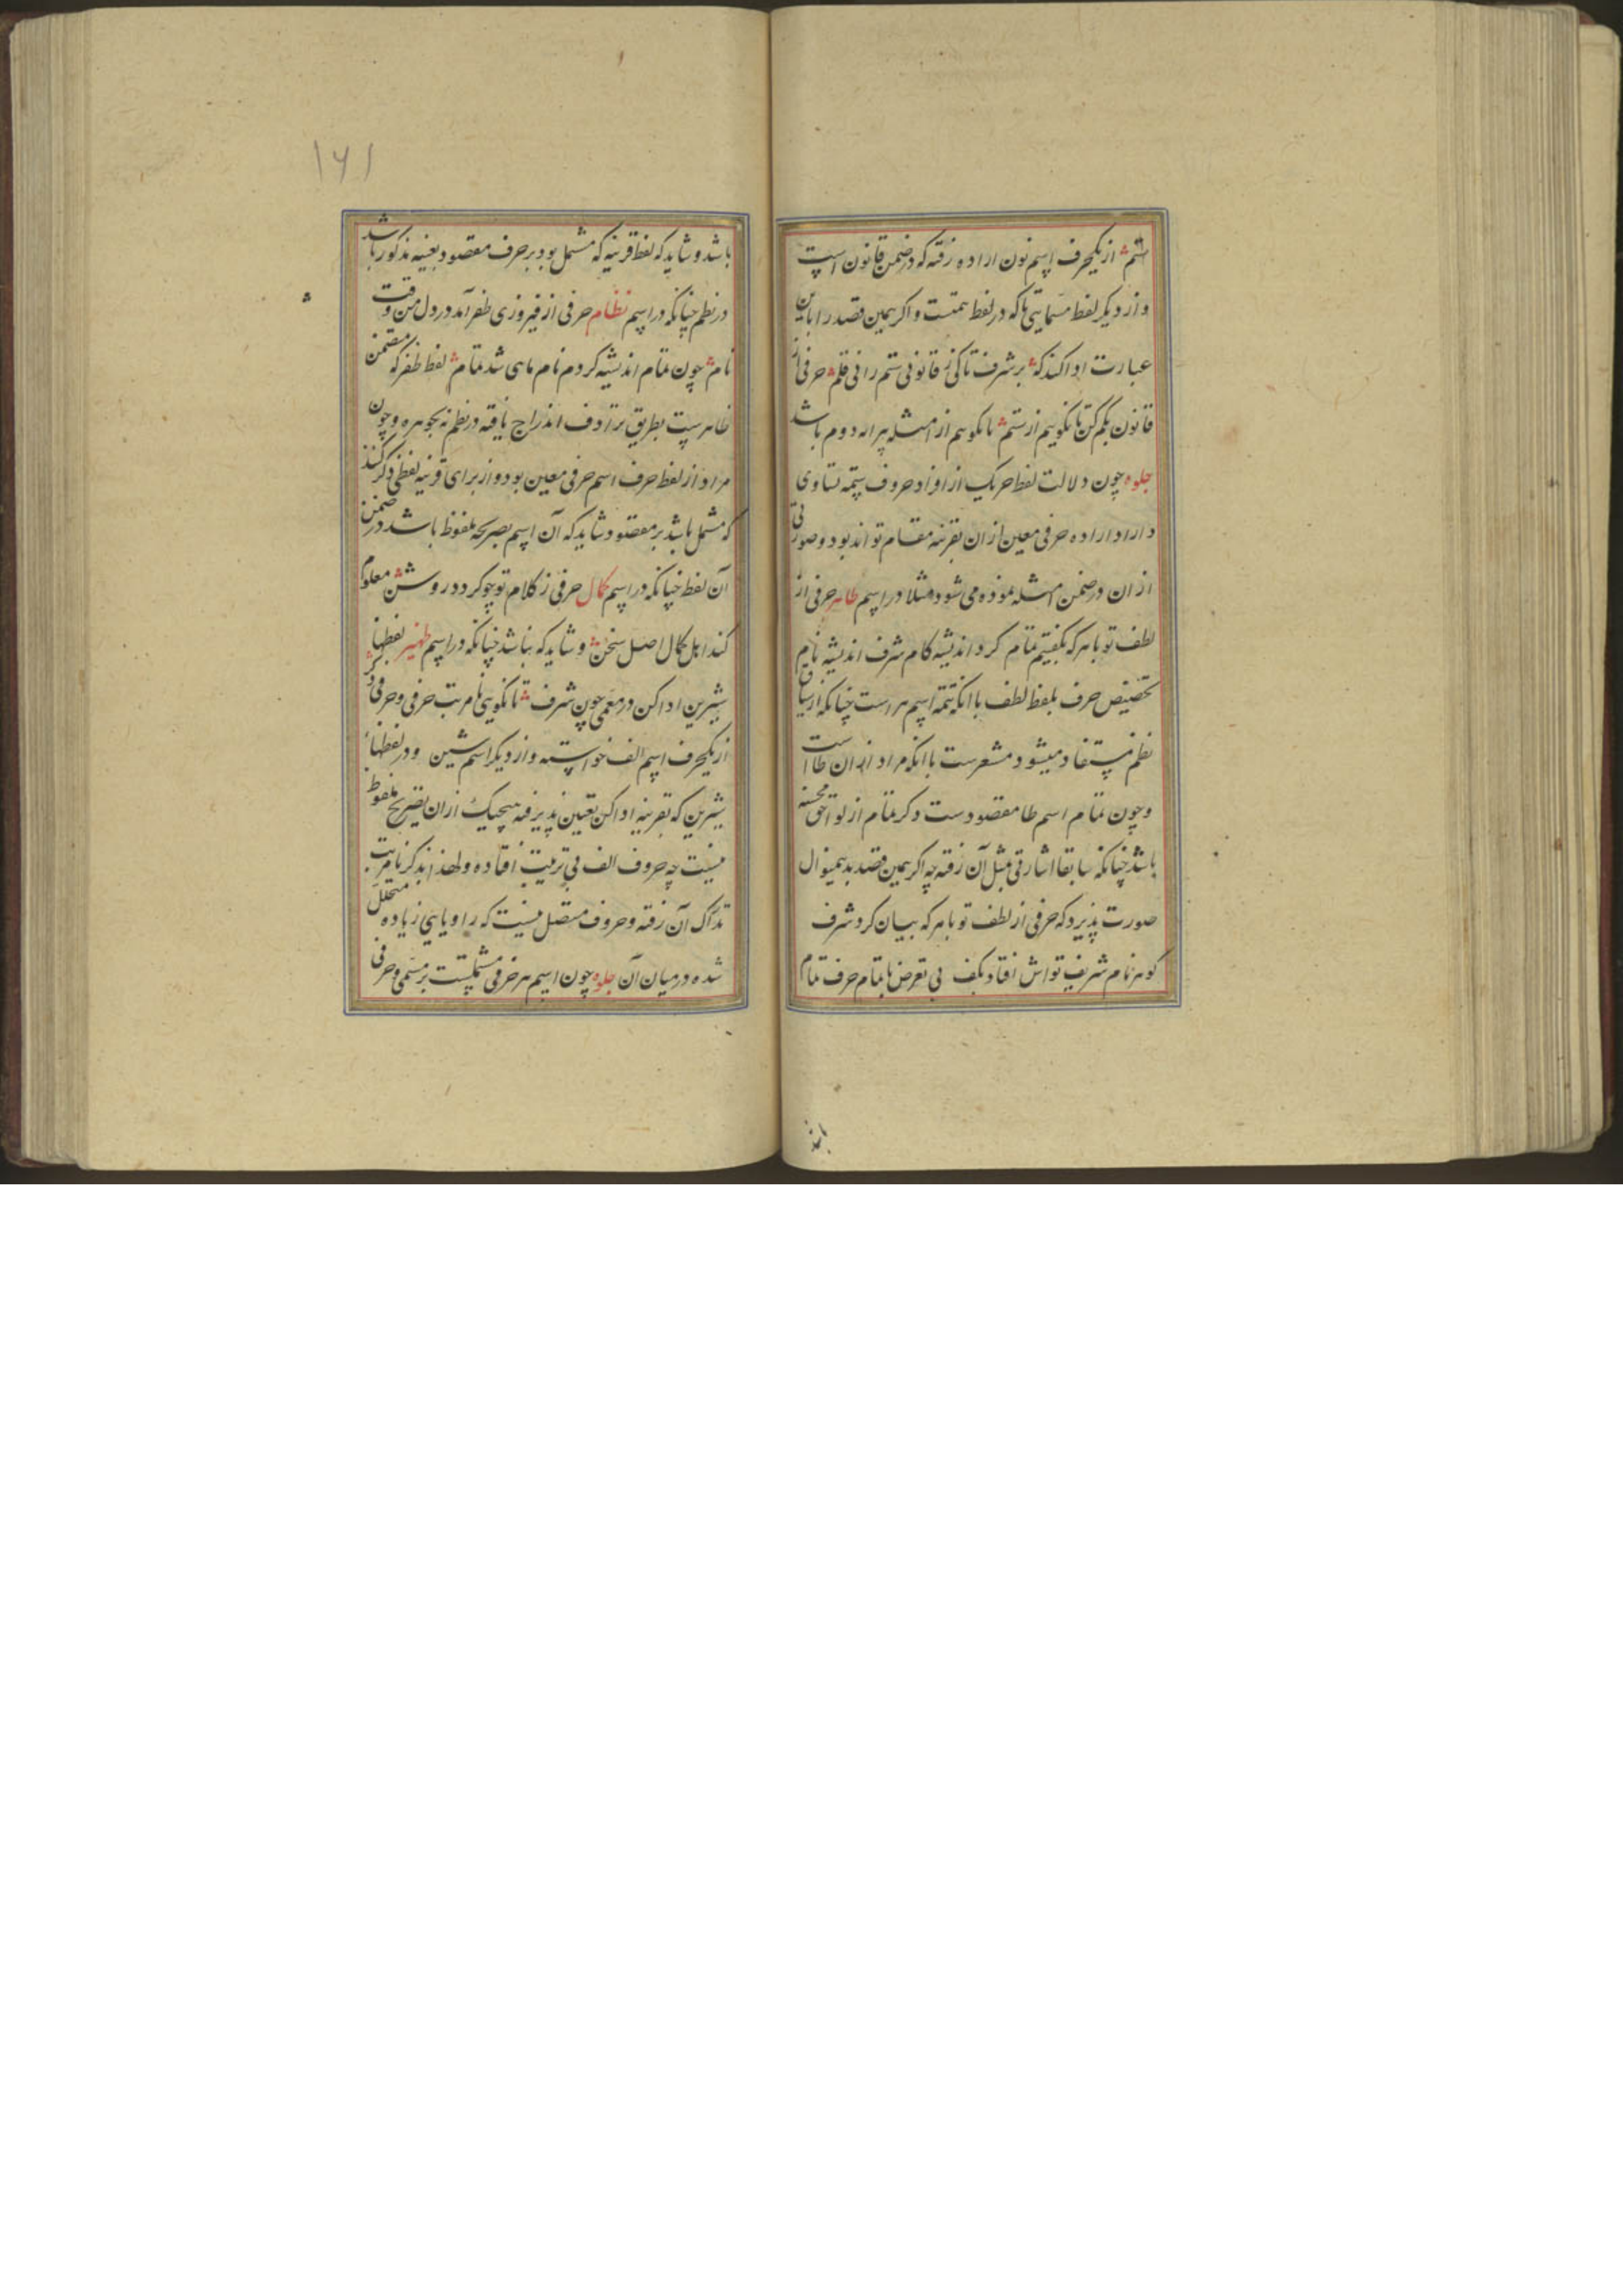 ستم از یکحرف اسم نون اراده رفته که در ضمن قانون است
و از دیگر لفظ مسمایتی تا که در لفظ همتست و اگر همین قصد را باین
عبارت ادا کنند که بر شرف تا کی ز قانونی ستم رانی قلم حرفی از
قانون بکم کن تا نگویم از ستم تا نگویم از امثله پیرایه دوم باشد
جلوه چون دلالت لفظ حرف بر هر یک از افراد حروف سمت تساوی
دارد اراده حرفی معین از ان بقرینه مقام تواند بود و صورتی
از ان در ضمن امثله نموده می شود مثلا در اسم طاهر حرفی از
لطف تو با هر که بگفتیم تمام کرد اندیشه کام شرف اندیشه نام
تخصیص حرف بلفظ لطف با انکه تتمه اسم هر است چنانکه از سیاق
نظم مستفاد میشود مشعرست بانکه مراد از ان طا است
و چون تمام اسم طا مقصودست ذکر تمام از لواحق محسنه
باشد چنانکه سابقا اشارتی بمثل آن رفته چه اگر همین قصد بدینمنوال
صورت پذیرد که حرفی از لطف تو با هر که بیان کرد شرف
گوهر نام شریف تواش افتاد بکف بی تعرض بتمام حرف تمام
باشد
۱۶۱
باشد و شاید که لفظ قرینه که مشتمل بود بر حرف مقصود بعینه مذکور باشد
در نظم چنانکه در اسم نظام حرفی از فیروزی ظفر آمد در دل من وقت
نام چون تمام اندیشه کردم نام ماهی شد تمام لفظ ظفر که متضمن
ظاهرست بطریق ترادف اندراج یافته در نظم نه بجوهره و چون
مراد از لفظ حرف اسم حرفی معین بود و از برای قرینه لفظی ذکر کنند
که مشتمل باشد بر مقصود شاید که آن اسم بصریحه ملفوظ باشد در ضمن
آن لفظ چنانکه در اسم کمال حرفی ز کلام تو چو گردد روشن معلوم
کند اهل کمال اصل سخن و شاید که نباشد چنانکه در اسم ظهیر لفظها
شیرین ادا کن در معمی چون شرف تا نگویی نامرتب حرفی و حرفی دگر
از یکحرف اسم الف خواسته و از دیگر اسم شین و در لفظها
شیرین که بقرینه ادا کن تعیین پذیرفته هیچیک از ان بتصریح ملفوظ
نیست چه حروف الف بی ترتیب افتاده و لهذا بذکر نامرتب
تدارک آن رفته و حروف متصل نیست که را و یایی زیاده متخلل
شده در میان آن جلوه چون اسم هر حرفی مشتملست بر مسمی و حرفی